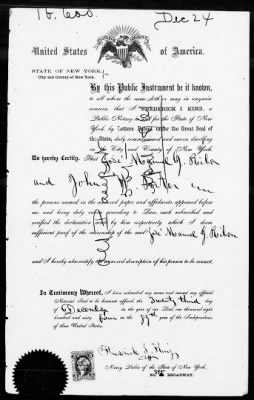 16.600. Dec 24
United States of America.
STATE OF NEW YORK,
City and County of New York.
By this Public Instrument be it known,
to all whom the same doth or may in anywise
concern, that I FREDERICK I. KING, a
Public Notary in and for the State of New
York, by Letters Patent under the Great Seal of
the State, duly commissioned and sworn, dwelling
in the City and County of New York,
Do hereby Certify, That José Manuel G.
and John
the persons named in the annexed paper and affidavits, appeared before
me, and being duly sworn according to Law, each subscribed and
verified the declaration made by him respectively, which I deem
sufficient proof of the citizenship of the said José Manuel G.
and I hereby also certify the annexed description of his person to be correct.
In Testimony Whereof, I have subscribed my name and caused my official
Notarial Seal to be hereunto affixed, the Twenty third day
of December in the year of our Lord, one thousand eight
hundred and sixty four in the 89th year of the Independence
of these United States.
Frederick I. King
Notary Public of the State of New York,
BROADWAY.